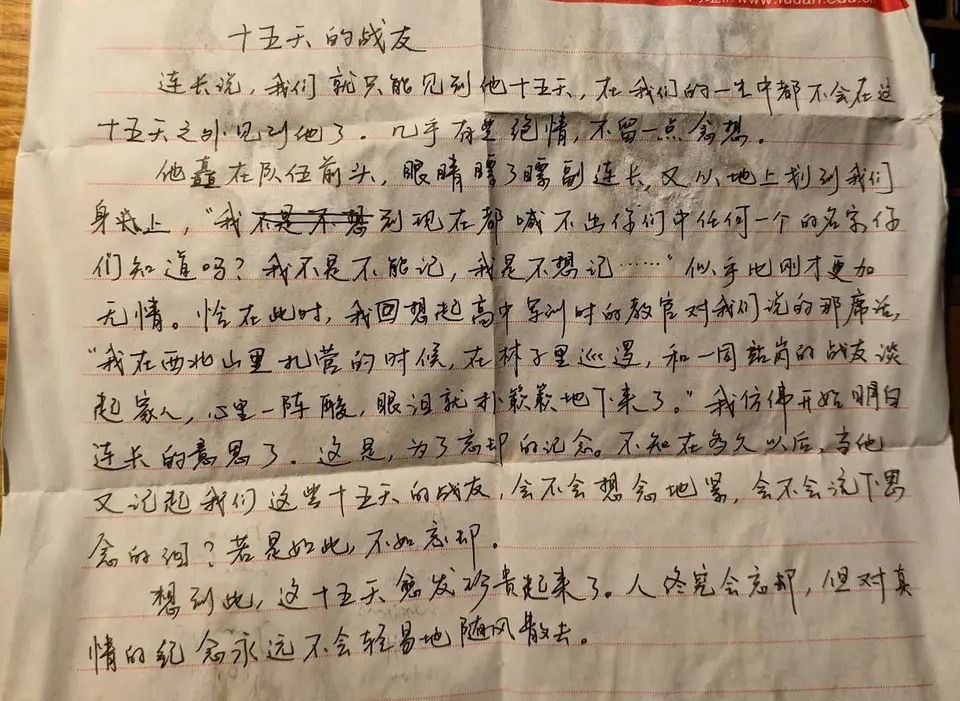 www.fudan.edu.c
十五天的战友
连长说，我们就只能见到他十五天，在我们的一生中都不会在这
十五天之外见到他了。几乎有些绝情，不留一点念想。
他矗在队伍前头，眼睛瞟了瞟副连长，又从地上划到我们
身上，“我不是不想到现在都喊不出你们中任何一个的名字你
们知道吗？我不是不能记，我是不想记……”似乎比刚才更加
无情。恰在此时，我回想起高中军训时的教官对我们说的那席话，
“我在西北山里扎营的时候，在林子里巡逻，和一同站岗的战友谈
起家人，心里一阵酸，眼泪就扑簌簌地下来了。”我仿佛开始明白
连长的意思了。这是，为了忘却的记念。不知在多久以后，当他
又记起我们这些十五天的战友，会不会想念地紧，会不会流下思
念的泪？若是如此，不如忘却。
想到此，这十五天愈发珍贵起来了。人终究会忘却，但对真
情的纪念永远不会轻易地随风散去。